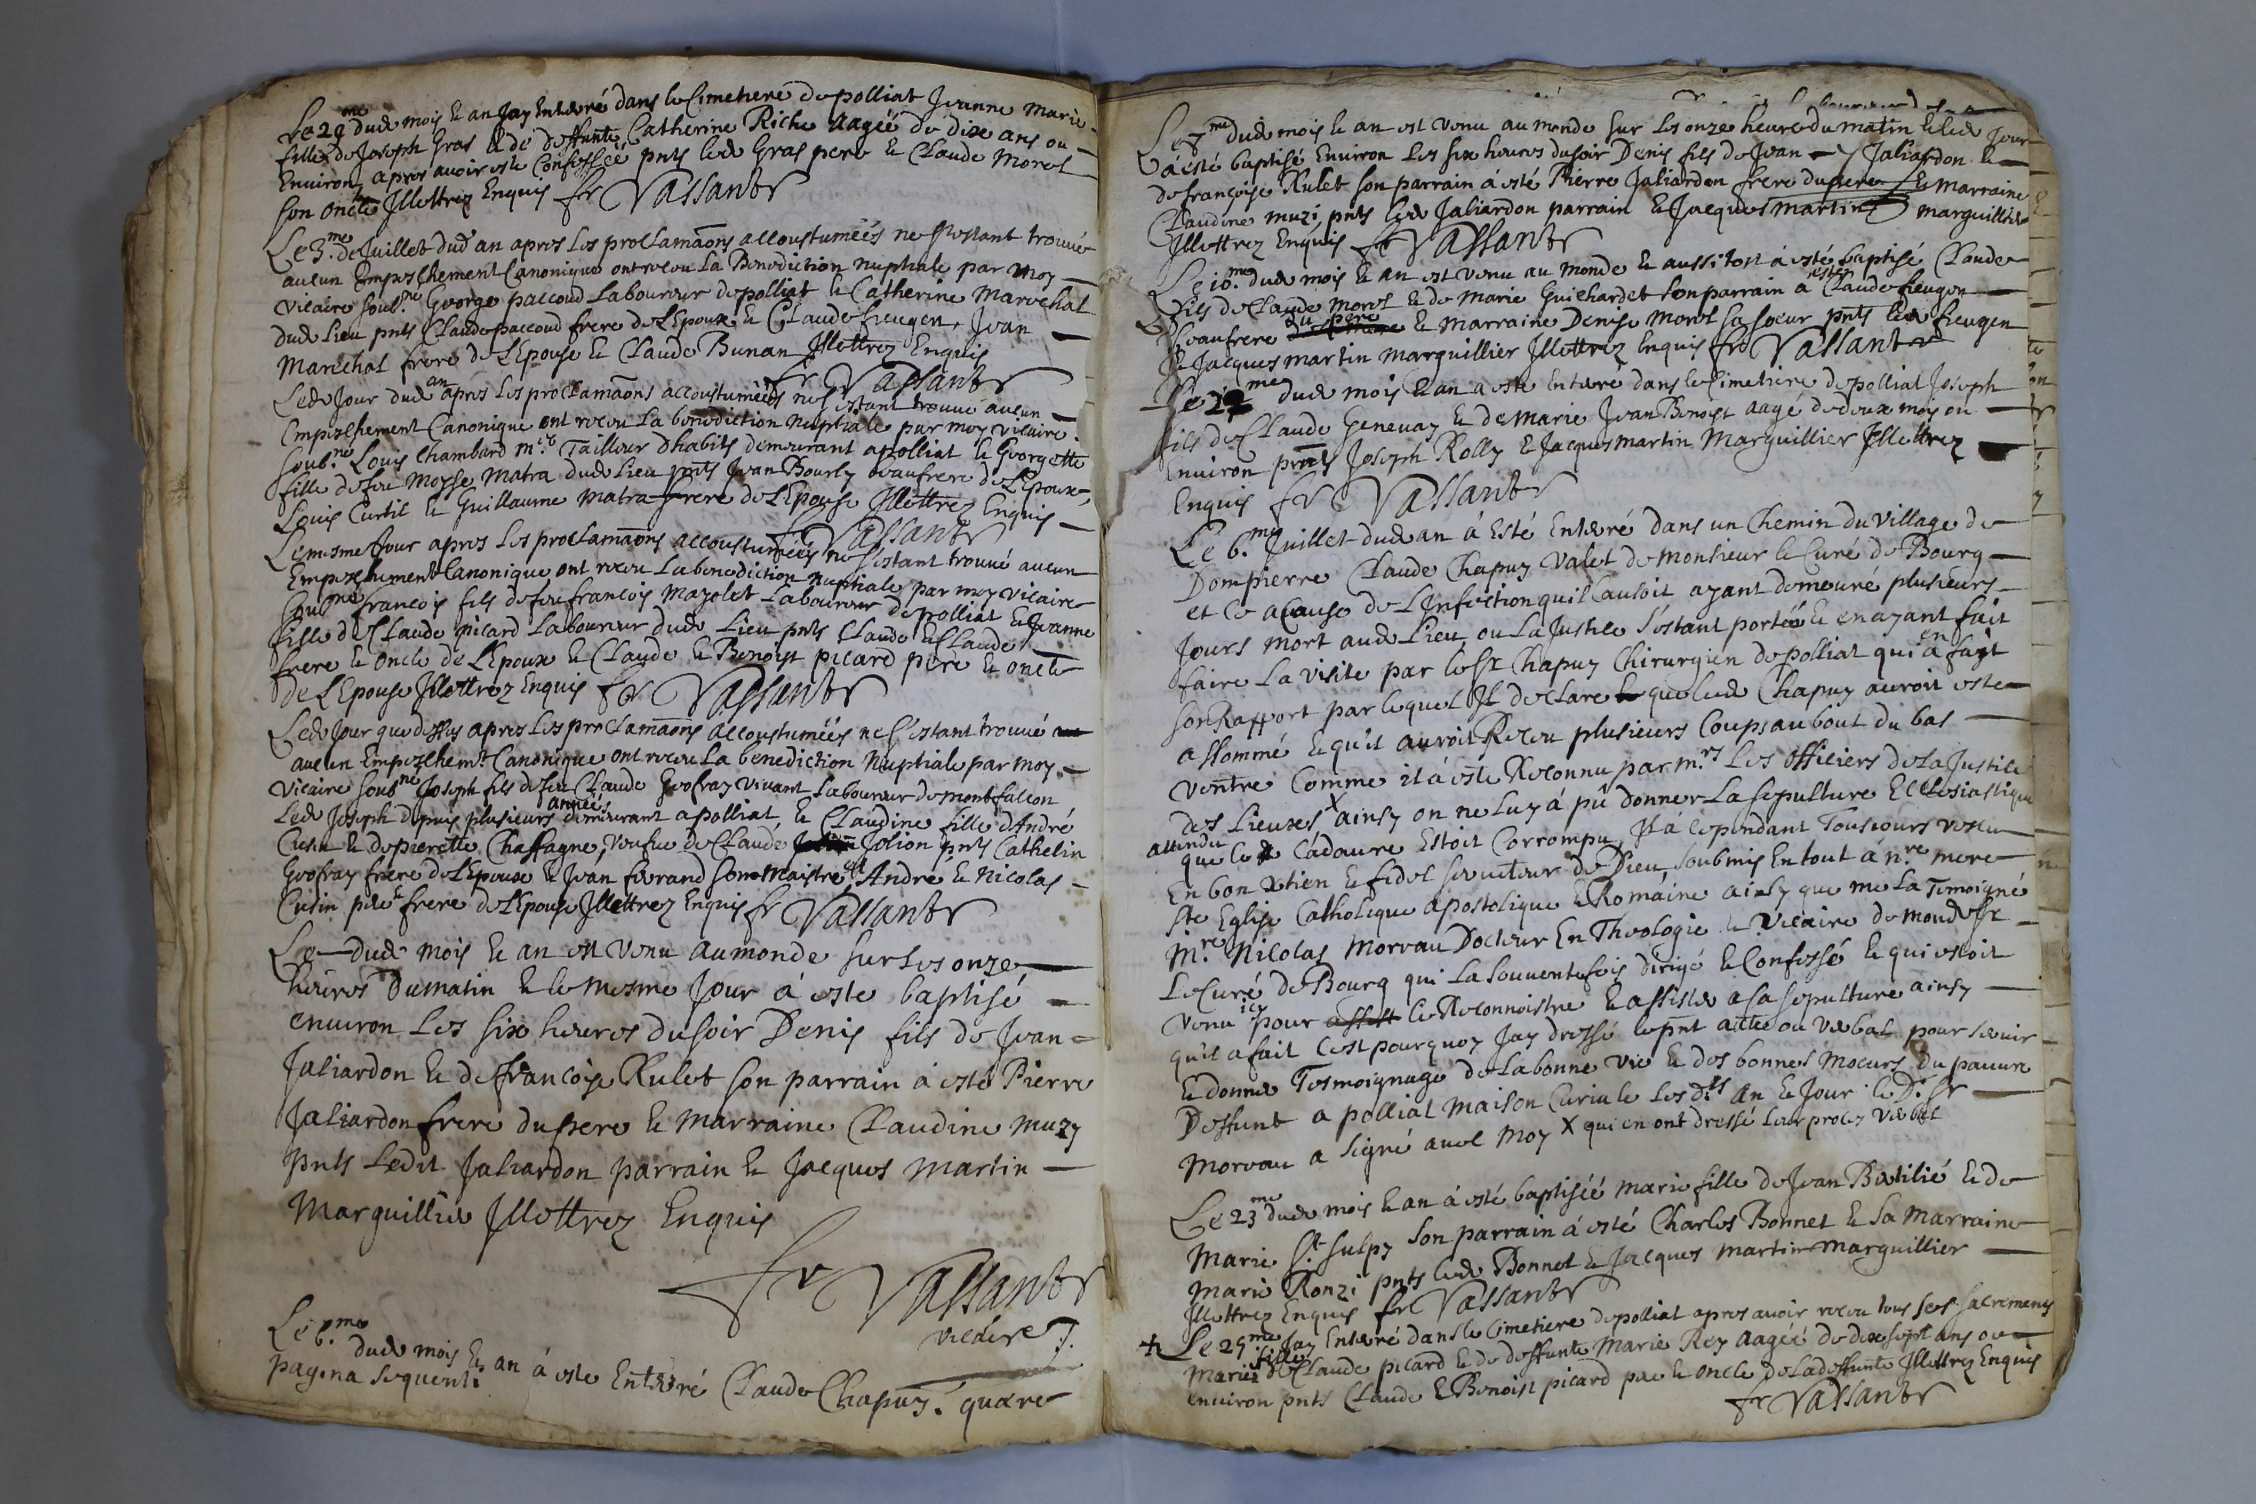 Le 29me dud mois & an Jay Enterré dans le Cimetiere de polliat Jeanne Marie
fille de Joseph Gras & de deffunte Catherine Riche aagéé de dixe ans ou
Environ apres avoir este Confesséé pnts led Gras pere & Claude Morel
son oncle Jllettrez Enquis fr Vassante
Le 3.me de Juillet dud an apres les proclamaons accoustumeés ne sestant trouué
aucun Empeschement Canonique ont receu La Benediction nuptiale par moy
vicaire soub.né George paccoud Laboureur de polliat & Catherine Marechal
dud Lieu pnts Claude paccoud frere de L'Epoux & Claude fieugen, Jean
Marechal frere de L'Epouse & Claude Bunan Jllettrez Enquis
fr Vassante
Led Jour dud an apres les proclamaons accoustumeés ne sestant trouué aucun
Empeschement Canonique ont receu La benediction Nuptiale par moy vicaire
soub.né Louis Chambard m.e Tailleur dhabits demeurant a polliat & Georgette
fille de feu Moyse Matra dud Lieu pnts Jean Bourly beaufrere de L'Epoux,
Louis Curtil & Guillaume matra frere de L'Epouse Jllettrez Enquis
fr Vassante
Le mesme Jour apres les proclamaons accoustumeés ne sestant trouué aucun
Empeschement Canonique ont receu La benediction nuptiale par moy vicaire
soub.né francois fils de feu francois Mazolet Laboureur de polliat & Jeanne
fille de Claude picard Laboureur dud Lieu pnts Claude & Claude
frere & oncle de L'Epoux & Claude & Benoist picard pere & oncle
de L'Epouse Jllettrez Enquis fr Vassante
Led Jour que dessus apres Les proclamaons accoustumeés ne s'estant trouué
aucun Empeschemt. Canonique ont receu La benediction Nuptiale par moy
vicaire soub.né Joseph fils de feu Claude Geofray vivant Laboureur de montfalcon
Led Joseph depuis plusieurs années demeurant a polliat & Claudine fille d'André
Cusin & de pierrette Chassagne, veufue de Claude Jolion pnts Cathelin
Geofray frere de L'Epoux & Jean ferrand son Maistre & André & Nicolas
Cusin pere & frere de L'Epouse Jllettrez Enquis fr Vassante
Le dud mois & an est venu au monde sur Les onze
heures du matin & le mesme Jour à este baptisé
environ Les six heures du soir Denis fils de Jean
Jaliardon & de francoise Rulet son parrain à esté Pierre
Jaliardon frere du pere & Marraine Claudine muzy
pnts Ledit Jaliardon parrain & Jacques Martin
Marguillier Jllettrez Enquis
fr Vassante
vicaire
Le 6.me dud mois & an à este Enterré Claude Chapuy. quære
pagina sequenti
Le 7me dud mois & an est venu au monde sur les onze heure du matin & led Jour
à esté baptisé Environ les six heures du soir Denis fils de Jean Jaliardon &
de françoise Rulet son parrain à esté Pierre Jaliardon frere du pere & Marraine
Claudine muzi, pnts led Jaliardon parrain & Jacques Martin marguillier
Jllettrez Enquis fr Vassante
Le 10.me dud mois & an est venu au monde & aussi tost à esté baptisé Claude
fils de Claude Morel & de Marie Guichardet son parrain a esté Claude fieugen
beaufrere du pere & marraine Denise Morel sa soeur pnts led fieugen
& Jacques Martin marguillier Jllettrez Enquis fr Vassante
Le me dud mois & an a este Enterré dans le Cimetiere de polliat Joseph
fils de Claude Genevay & de Marie Jean Benoist aagé de deux mois ou
Environ pnts Joseph Rolly & Jacques martin Marguillier Jllettrez
Enquis fr Vassante
Le 6.me Juillet dud an à Esté Enterré dans un Chemin du village de
Dompierre Claude Chapuy valet de Monsieur le Curé de Bourg
et Ce a Cause de L'Infection quil Causoit ayant demeuré plusieurs
Jours mort aud Lieu ou La Justice s'estant portéé & en ayant fait
faire La visite par le Sr Chapuy Chirurgien de polliat qui en a fait
son Rapport par lequel Jl declare que led Chapuy auroit este
assommé & qu'il auroit Receu plusieurs Coups au bout du bas
ventre Comme il à este Reconnu par m.rs Les officiers de la Justice
des Lieux x ainsy on ne Luy á pû donner La sepulture Ecclesiastique
attendu que le Cadavre Estoit Corrompu, Jl à cependant Tousiours vescu
En bon xtien & fidel serviteur de Dieu, soubmis En tout à n.re mere
ste Eglise Catholique apostolique & Romaine ainsy que me La Temoigné
m.re Nicolas Moreau Docteur En Theologie & vicaire de mond Sr
Le Curé de Bourg qui La souventefois dirigé & Confessé & qui estoit
venu icy pour le Reconnoistre & assister a sa sepulture ainsy
qu'il a fait C'est pourquoy Jay dressé le pnt acte ou verbal pour servir
& donner Tesmoignage de La bonne vie & des bonnes Moeurs du pauure
Deffunt a polliat Maison Curiale Les d.ts An & Jour & Dt. Sr
Moreau a signé avec Moy x qui en ont dressé Leur procez verbal
Le 23me dud mois & an à esté baptiséé Marie fille de Jean Bertilié & de
Marie St. Sulpy son parrain à esté Charles Bonnet & sa Marraine
Marie Ronzi pnts led Bonnet & Jacques Martin marguillier
Jllettrez Enquis fr Vassante
Le 29me Jay Enterré dans le Cimetiere de polliat apres avoir receu tous ses sacrements
Marie fille de Claude picard & de deffunte Marie Rey aagéé de dixsept ans ou
environ pnts Claude & Benoist picard pere & oncle de La deffunte Jllettrez Enquis
fr Vassante